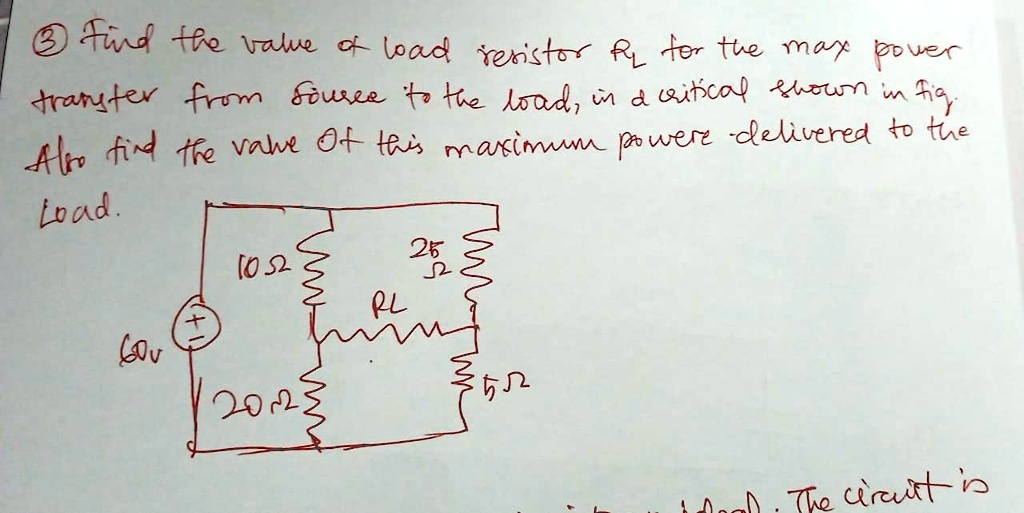 ③ Find the value of load resistor RL for the max power
transfer from source to the load, in a critical shown in fig.
Also find the value Of this maximum powere delivered to the
Load.
10Ω
25
Ω
RL
+
-
60v
20Ω
5Ω
The circuit is